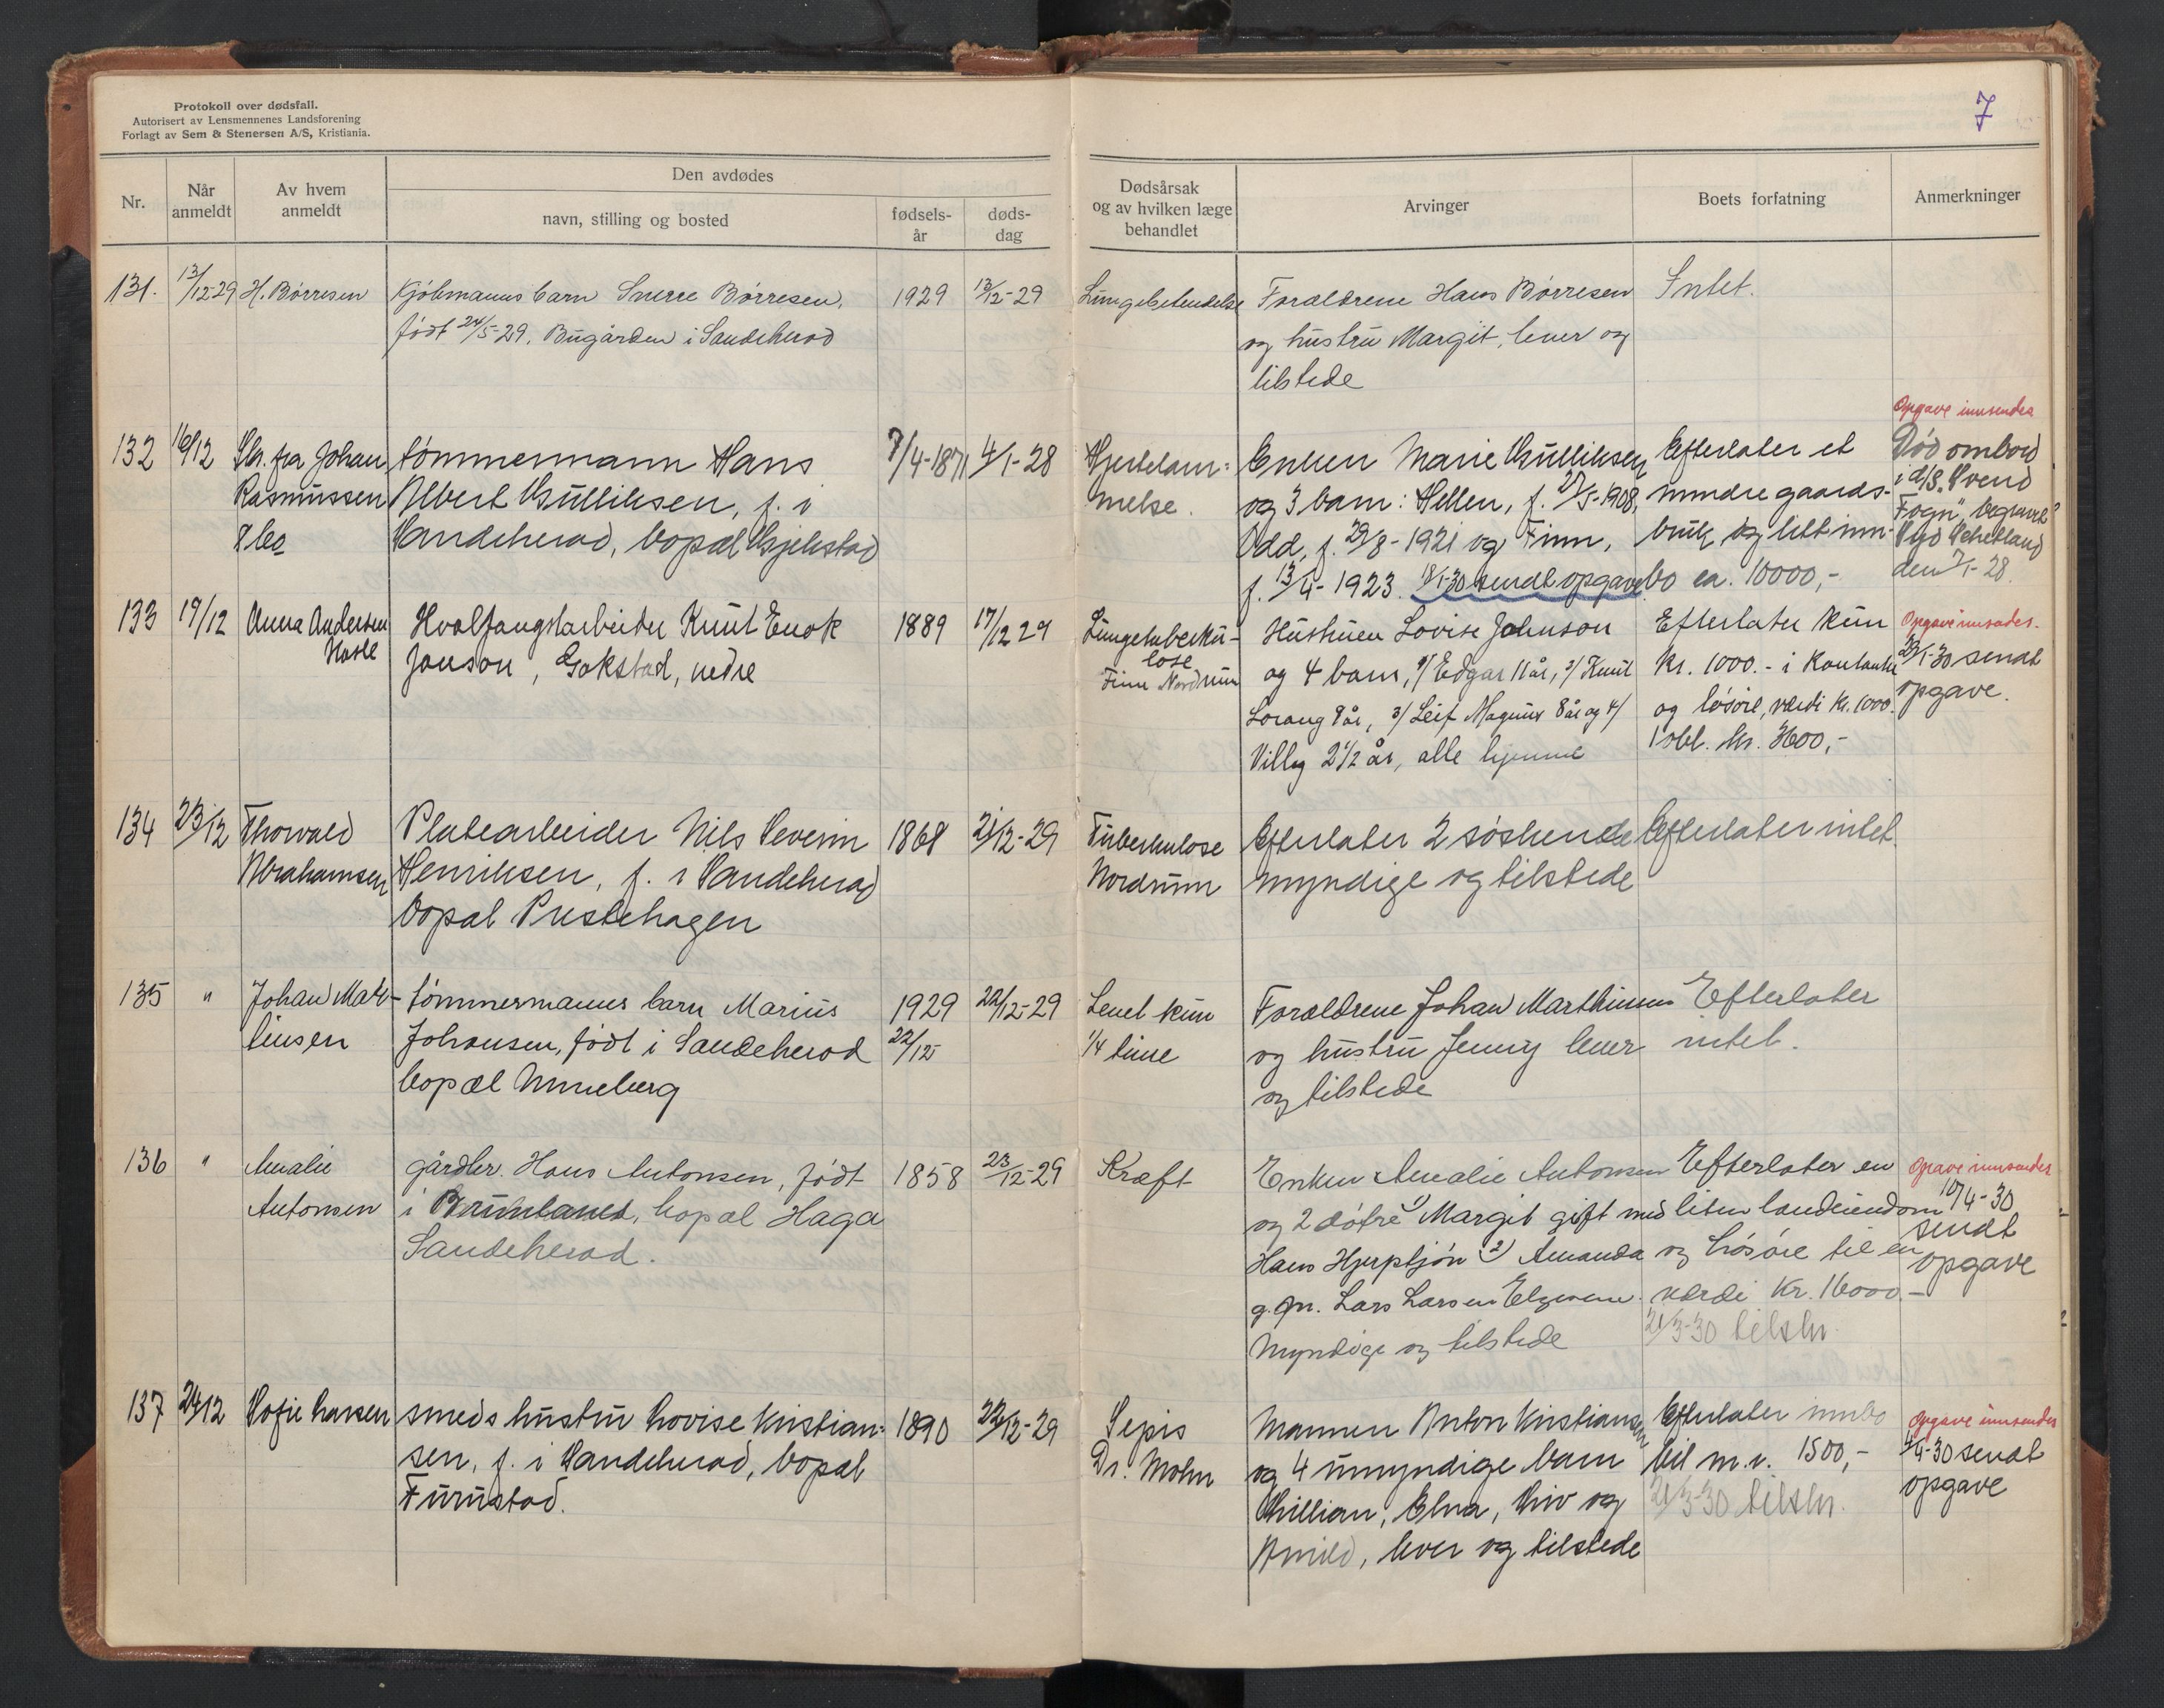 Protokoll over dødsfall.
Autorisert av Lensmennenes Landsforening
Forlagt av Sem & Stenersen A/S, Kristiania.
7
Nr.
Når anmeldt
Av hvem anmeldt
Den avdødes
navn, stilling og bosted
fødsels-år
døds-dag
Dødsårsak og av hvilken læge behandlet
Arvinger
Boets forfatning
Anmerkninger
131.
13/12-29
H. Børresen
Kjøbmanns barn Sverre Børresen,
født 24/5-29, Bugården i Sandeherad
1929
13/12-29
Lungebetendelse
Forældrene Hans Børresen
og hustru Margit, lever og
tilstede
Intet.
132
16/12
Skr. fra Johan
Rasmussen
& Co
tømmermann Hans
Albert Gulliksen, f. i
Sandeherad, bopæl Gjekstad
7/4-1871
4/1-28
Hjertelam-
melse.
Enken Marie Gulliksen
og 3 barn: Hellen, f. 27/5-1908,
Odd, f. 29/8-1921 og Finn,
f. 13/4-1923. 18/1-30 sendt opgave
Efterlater et
mindre gaards-
bruk og litt inn-
bo ca. 10000,-
Opgave innsendes
Død ombord
i d/s. "Svend
Foyn", begravet
Syd Schetland
den 7/1-28.
133
19/12
Anna Andersen
Hasle
Hvalfangstarbeider Knut Enok
Jonson, Gokstad, nedre
1889
17/12 29
Lungetuberku-
lose
Finn Nordrum
Hustruen Lovise Johnson
og 4 barn, 1/ Edgar 11 år, 2/ Knut
Lorang 9 år, 3/ Leif Magnus 8 år og 4/
Villy 2 1/2 år, alle hjemme
Efterlater kun
kr. 1000.- i kontanter
og løsøre, værdi kr. 1000.
1 obl. kr. 3600,-
Opgave innsendes.
23/1-30 sendt
opgave.
134
23/12
Thorvald
Abrahamsen
Platearbeider Nils Severin
Henriksen, f. i Sandeherad
bopæl Prestehagen
1868
21/12-29
Tuberkulose
Nordrum
Efterlater 2 søskende
myndige og tilstede
Efterlater intet.
135
"
Johan Mar-
tinsen
tømmermanns barn Marius
Johansen, født i Sandeherad
bopæl Unneberg
1929
22/12
22/12-29
Levet kun
1/4 time
Forældrene Johan Marthinsen
og hustru Jenny lever
og tilstede
Efterlater
intet.
136
"
Amalie
Antonsen
gårdbr. Hans Antonsen, født
i Brunlanes, bopæl Haga
Sandeherad.
1858
23/12-29
Kræft
Enken Amalie Antonsen
og 2 døtre 1) Margit gift med
Hans Hjerptjøn 2) Amanda
g. m. Lars Larsen
Myndige og tilstede
Efterlater en
liten landeiendom
og løsøre til en
værdi kr. 16000.-
21/3-30 tilskr.
Opgave innsendes
10/4-30
sendt
opgave
137
24/12
Sofie Larsen
smeds hustru Lovise Kristian-
sen, f. i Sandeherad, bopæl
Furustad.
1890
22/12-29
Sepis
Dr. Mohn
Mannen Anton Kristiansen
og 4 umyndige barn
Lillian, Elna, Liv og
Arnild, lever og tilstede
Efterlater innbo
til m.v. 1500,-
21/3-30 tilskr.
Opgave innsendes
4/4-30 sendt
opgave